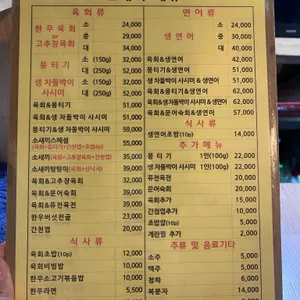 육 회 류
한 우 육 회 소 24,000
or 중 29,000
고추장육회 대 34,000
뭉 티 기 소 (150g) 32,000
대 52,000
생 차돌박이 소 (150g) 32,000
사시미 대 52,000
육회&뭉티기 51,000
육회&생 차돌박이 사시미 51,000
뭉티기&생 차돌박이 사시미 59,000
소새끼스페셜 55,000
소새끼 35,000
소새끼탕탕이 35,000
육회&고추장육회 32,000
육회&문어숙회 39,000
육회&퓨전육전 39,000
한우버섯전골 23,000
간천엽 20,000
식 사 류
육회초밥(10p) 12,000
육회비빔밥 10,000
한우소고기볶음밥 10,000
한우라면 5,500
연 어 류
소 24,000
생 연 어 중 30,000
대 40,000
육회&생연어 52,000
뭉티기&생연어 61,000
생 차돌박이 사시미&생연어 61,000
육회&뭉티기&생연어 57,000
육회&생 차돌박이 사시미&생연어 62,000
육회&문어숙회&생연어 57,000
식 사 류
생연어초밥(10p) 14,000
추 가 메 뉴
뭉 티 기 1인(100g) 22,000
생 차돌박이 사시미 1인(100g) 22,000
퓨전육전 20,000
문어숙회 20,000
육회추가 15,000
간천엽추가 10,000
초밥알(10p) 5,000
계란찜 추가 2,000
주류 및 음료기타
소주 5,000
맥주 5,000
청하 5,000
복분자 14,000